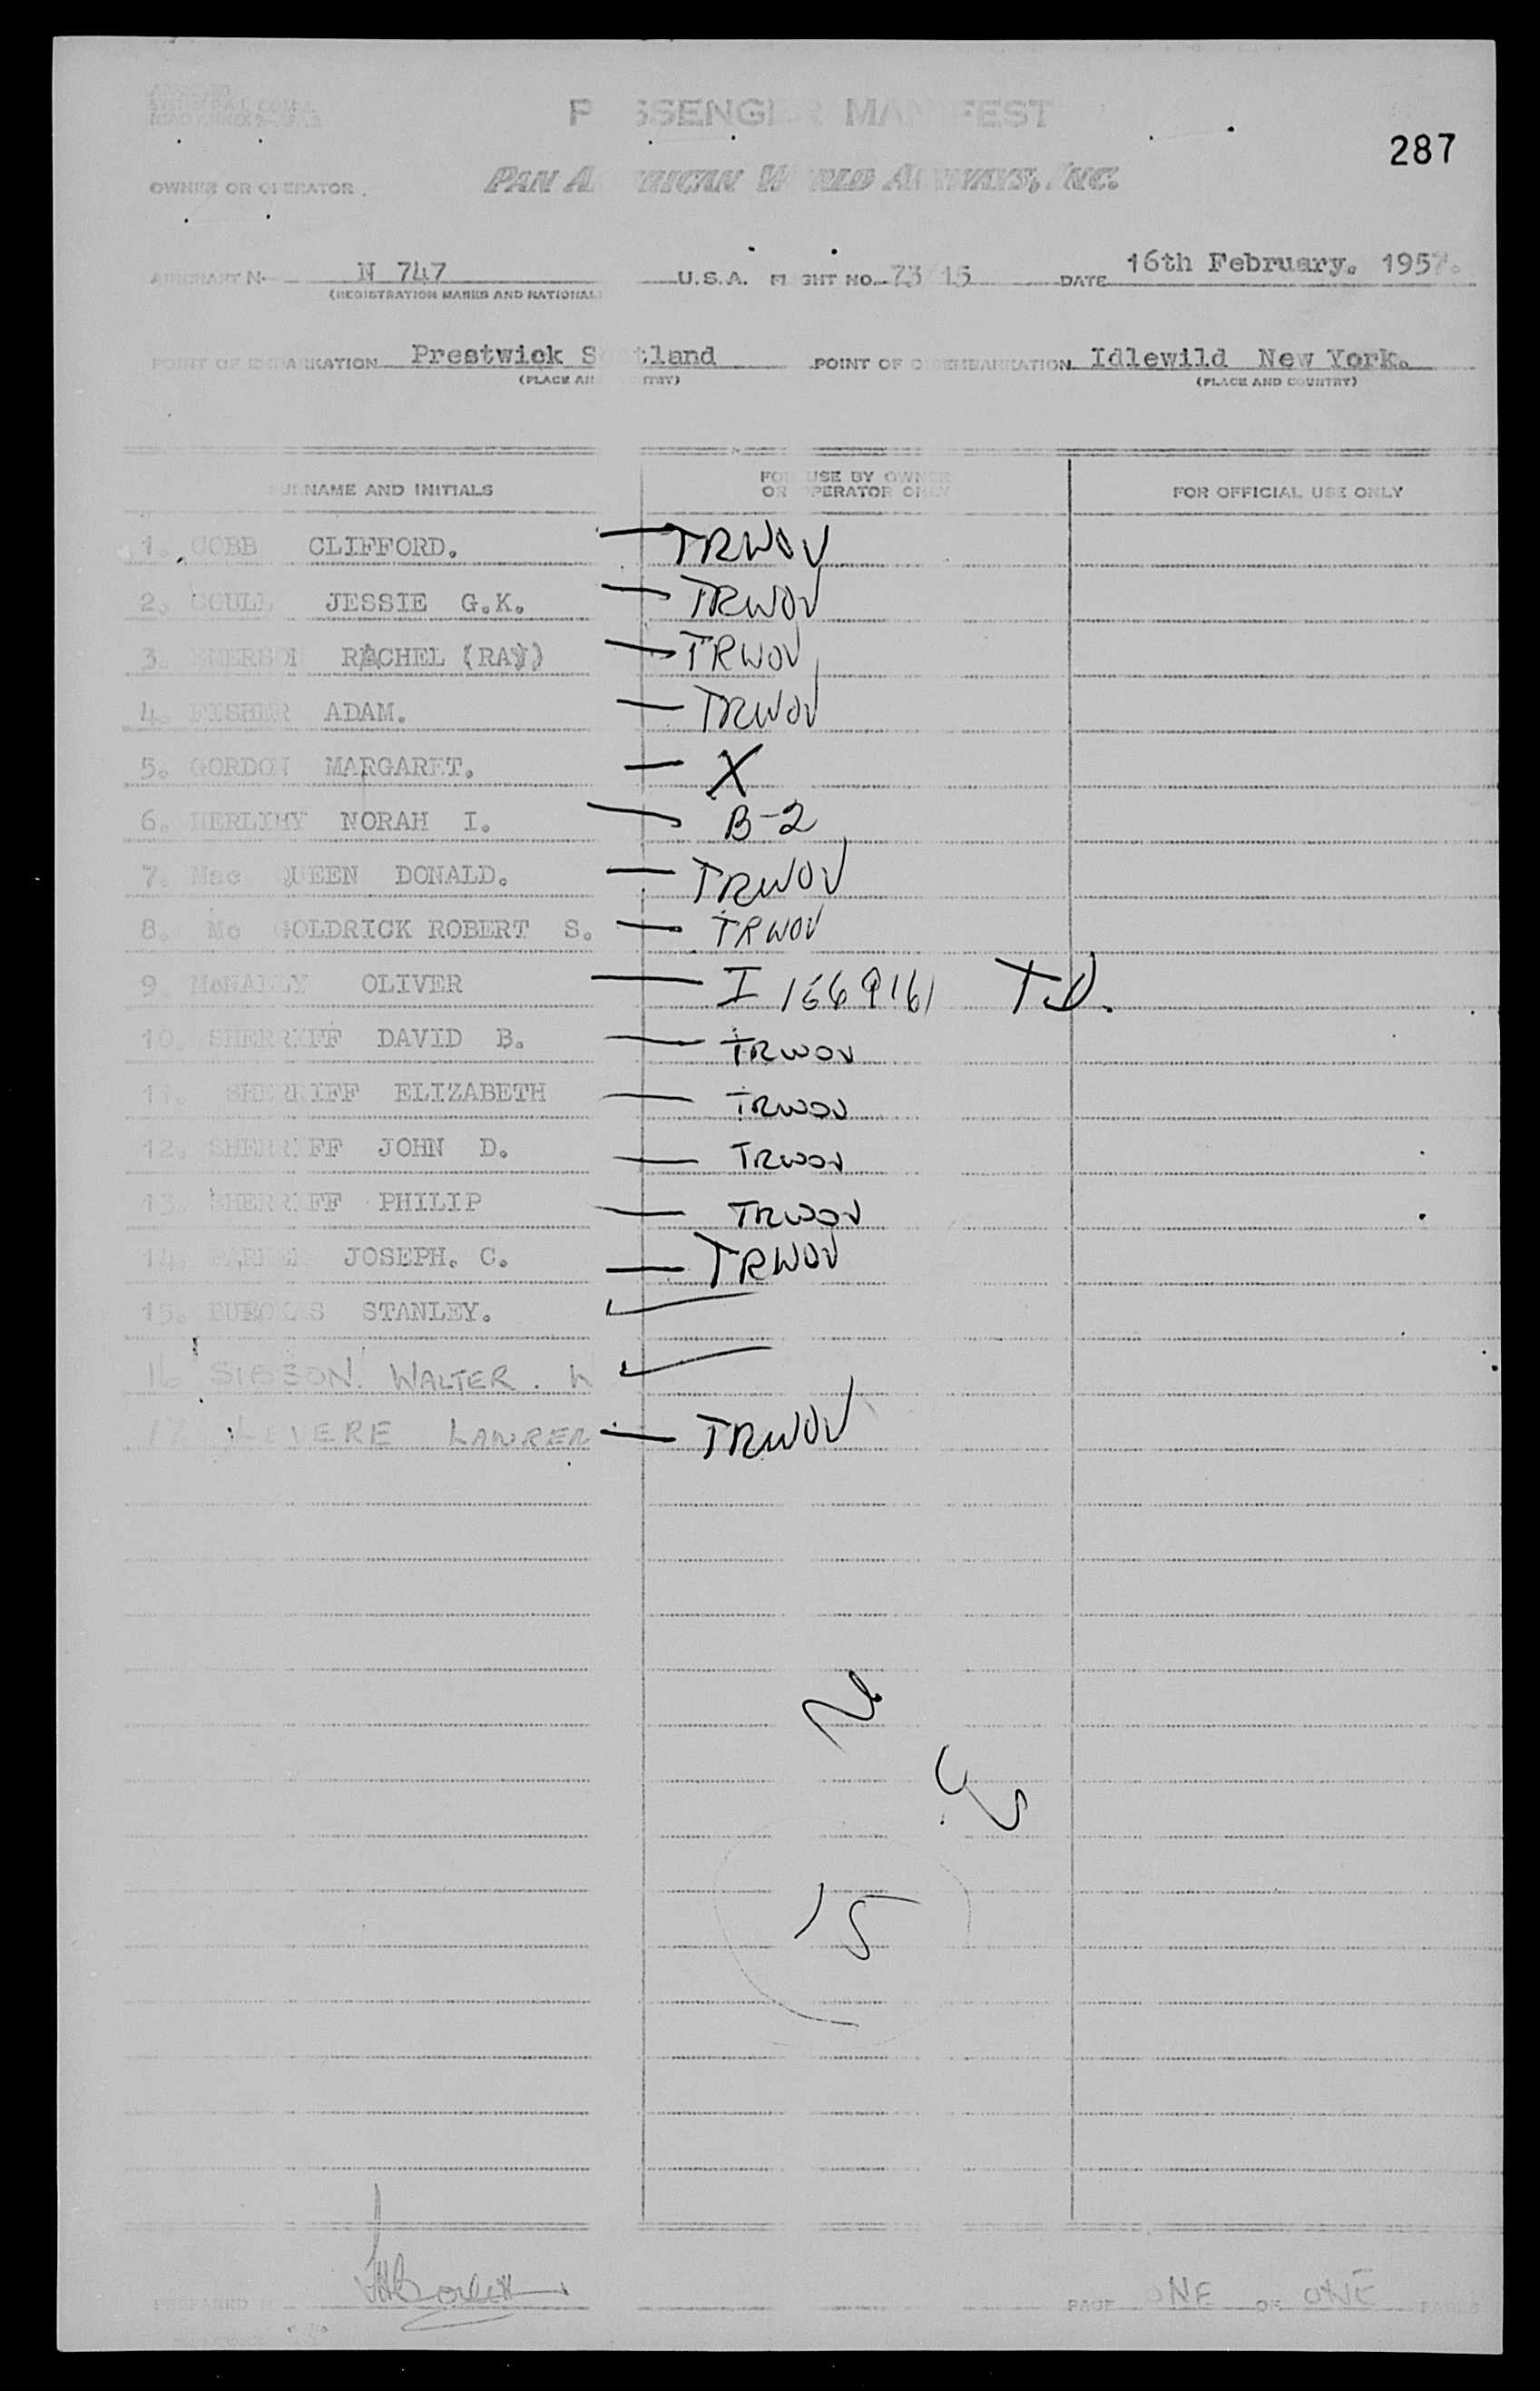 PASSENGER MANIFEST
287
OWNER OR OPERATOR.
PAN AMERICAN WORLD AIRWAYS, INC.
AIRCRAFT No. N 747 U.S.A. FLIGHT NO. 73/15 DATE 16th February. 1957.
(REGISTRATION MARKS AND NATIONALITY)
POINT OF EMBARKATION Prestwick Scotland POINT OF DISEMBARKATION Idlewild New York.
(PLACE AND COUNTRY) (PLACE AND COUNTRY)
SURNAME AND INITIALS FOR USE BY OWNER OR OPERATOR ONLY FOR OFFICIAL USE ONLY
1. COBB CLIFFORD. — TRWOV
2. COULL JESSIE G.K. — TRWOV
3. EMERSON RACHEL (RAY) — TRWOV
4. FISHER ADAM. — TRWOV
5. GORDON MARGARET. — X
6. HERLIHY NORAH I. — B-2
7. Mac QUEEN DONALD. — TRWOV
8. Mc GOLDRICK ROBERT S. — TRWOV
9. McNALLY OLIVER — I 1569161 T.D.
10. SHERRIFF DAVID B. — TRWOV
11. SHERRIFF ELIZABETH — TRWOV
12. SHERRIFF JOHN D. — TRWOV
13. SHERRIFF PHILIP — TRWOV
14. JOSEPH. C. — TRWOV
15. STANLEY. ✓
16 WALTER. W ✓
17 LAWREN — TRWOV
15
PREPARED BY
PAGE ONE OF ONE PAGES